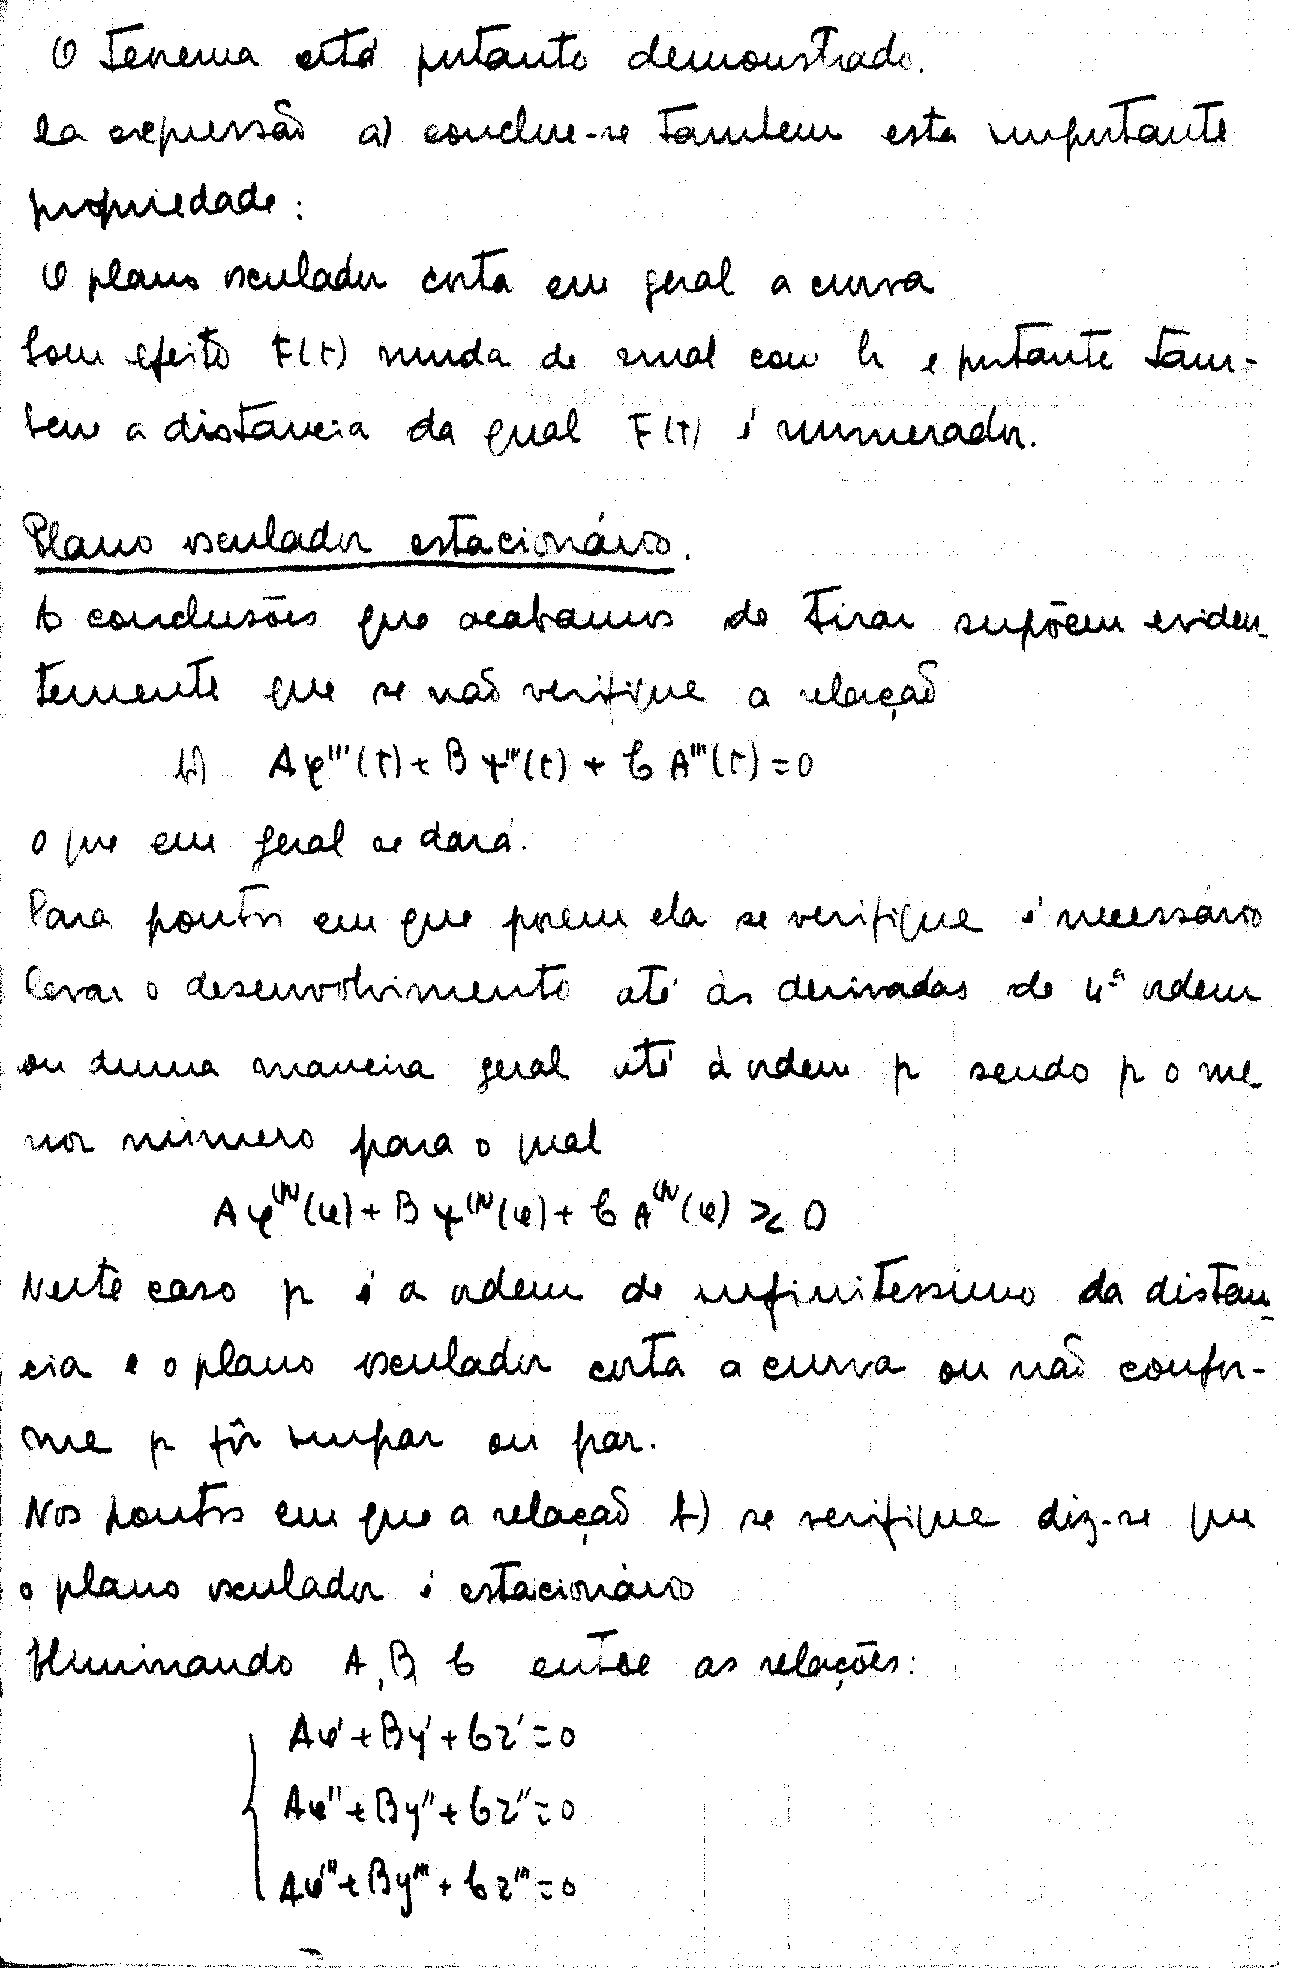 O teorema está portanto demonstrado.
Da expressão a) conclue-se tambem esta importante
propriedade:
O plano osculador corta em geral a curva
Com efeito F(t) muda de sinal com h e portante tam-
bem a distancia da qual F(t) é numerador.
Plano osculador estacionário.
As conclusões que acabamos de tirar supõem eviden
temente que se não verifique a relação
b) Aφ'''(t) + Bψ'''(t) + C A'''(t) = 0
o que em geral se dará.
Para pontos em que porem ela se verifique é necessário
levar o desenvolvimento até às derivadas de 4ª ordem
ou duma maneira geral até à ordem p sendo p o me
nor número para o qual
Aφ⁽ᵖ⁾(φ) + Bψ⁽ᵖ⁾(φ) + C A⁽ᵖ⁾(φ) ≷ 0
Neste caso p é a ordem de infinitessimo da distan-
cia e o plano osculador corta a curva ou não confor-
me p fôr impar ou par.
Nos pontos em que a relação b) se verifique diz-se que
o plano osculador é estacionário
Eliminando A, B, C entre as relações:
Aφ' + By' + Cz' = 0
Aφ'' + By'' + Cz'' = 0
Aφ''' + By''' + Cz''' = 0